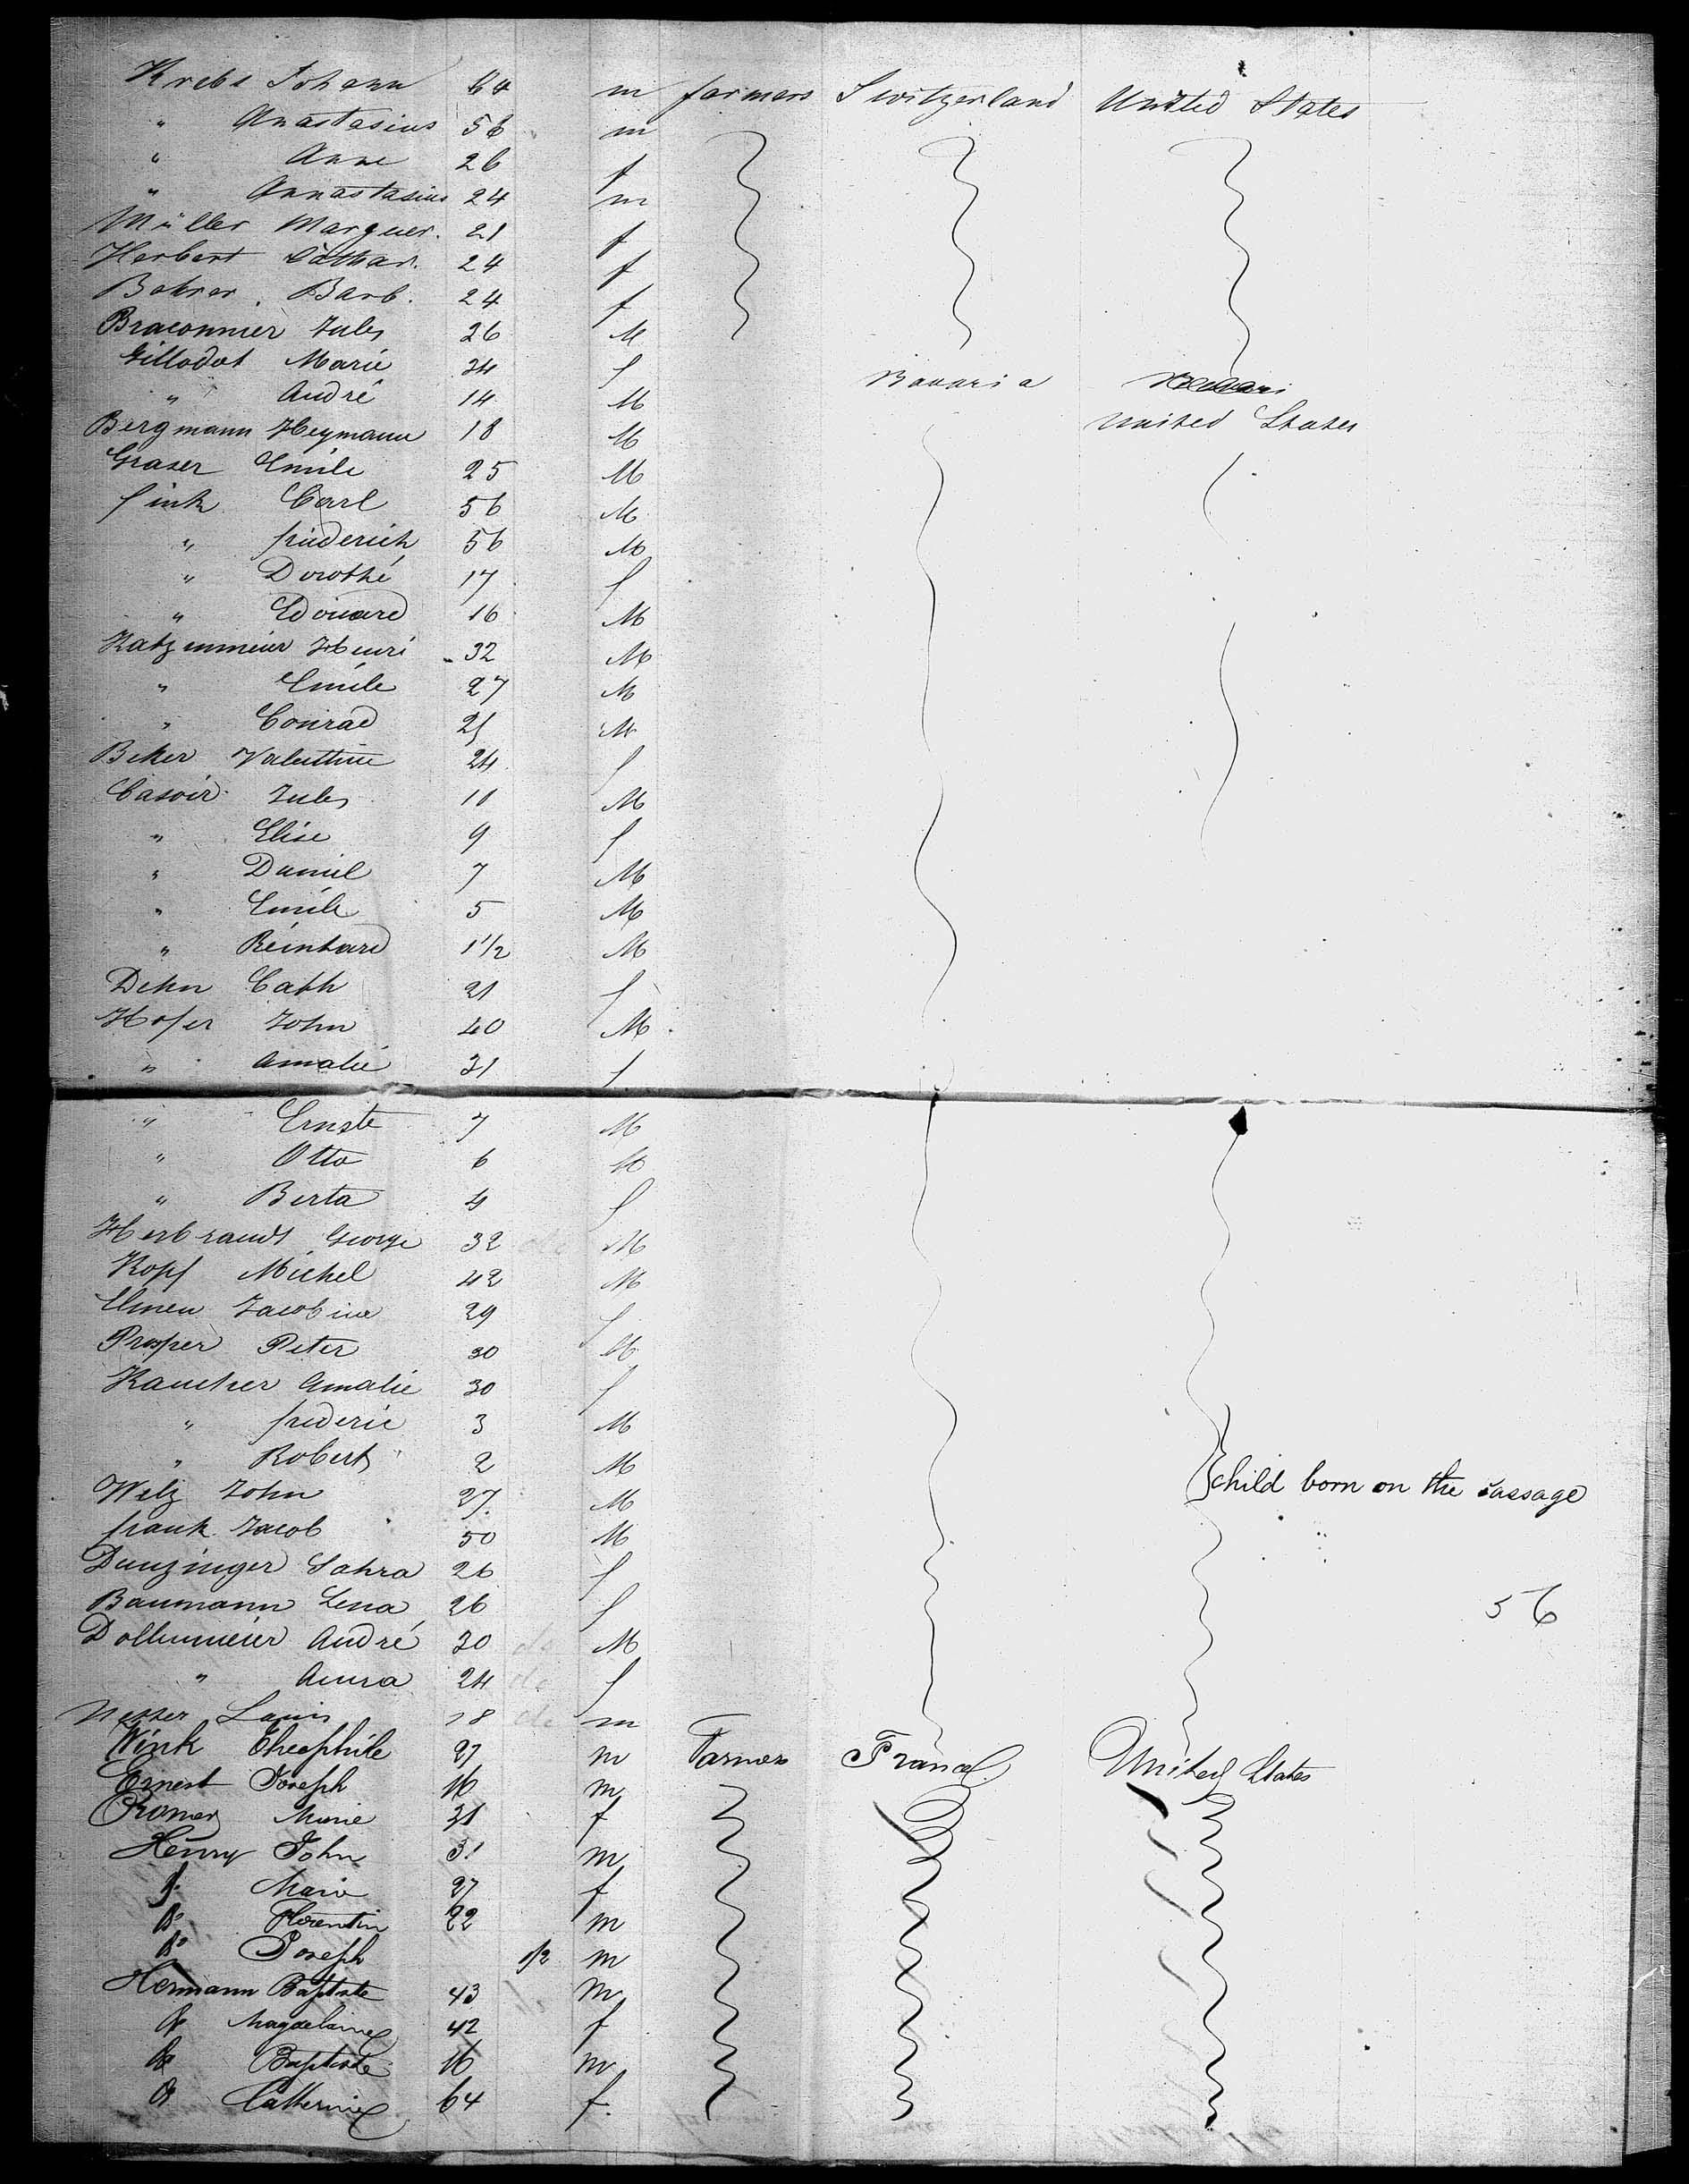 Krebs Johann 64 m farmers Switzerland United States
" Anastasius 56 m
" Anne 26 f
" Annastasius 24 m
Müller Marguer. 21 f
Herbert Cathar. 24 f
Bohrer. Barb. 24 f
Braconnier Jules 26 M
Gillodot Marie 34 f Bavaria
" André 14 M
Bergmann Heymann 18 M United States
Graser Emile 25 M
fink Carl 56 M
" friederich 56 M
" Dorothé 17 f
" Edouard 16 M
Katzenmeier Henri 32 M
" Emile 27 M
" Conrad 25 M
Beker Valentine 24 f
Casoir Jules 11 M
" Elise 9 f
" Daniel 7 M
" Emile 5 M
" Reinhard 1 1/2 M
Dehn Cath 21 f
Hofer John 40 M
" Amalie 31 f
" Ernste 7 M
" Otto 6 M
" Berta 4 f
Herbrandt George 32 M
Kopf Michel 42 M
Elmen Jacobine 29 f
Prosper Peter 30 M
Kaucher Amalie 30 f
" frederic 3 M
" Robert 2 M
Welz John 27. M child born on the passage
frank Jacob 50 M
Danzinger Sahra 26 f
Baumann Lena 26 f 56
Dollenmeier André 30 do M
" Anna 24 do f
Louis 18 do m
Wink Theophile 27 m Farmers France United States
Ernest Joseph 16 m
Romer Marie 31 f
Henry John 31 m
do Marie 27 f
do Florentin 22 m
do Joseph 1/2 m
Hermann Baptiste 43 m
do Magdelaine 42 f
do Baptiste 16 m
do Catherine 64 f.